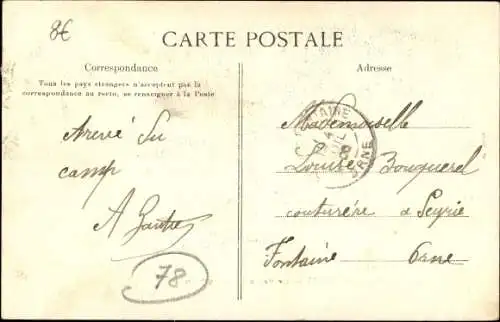 8€
CARTE POSTALE
Correspondance
Tous les pays étrangers n'acceptent pas la
correspondance au recto, se renseigner à la Poste
Arrivé Du
camp
A Gautier
78
Adresse
Mademoiselle
Louise Bouquerel
couturére a Peyrie
Fontaine Orne
TAINE
ORNE